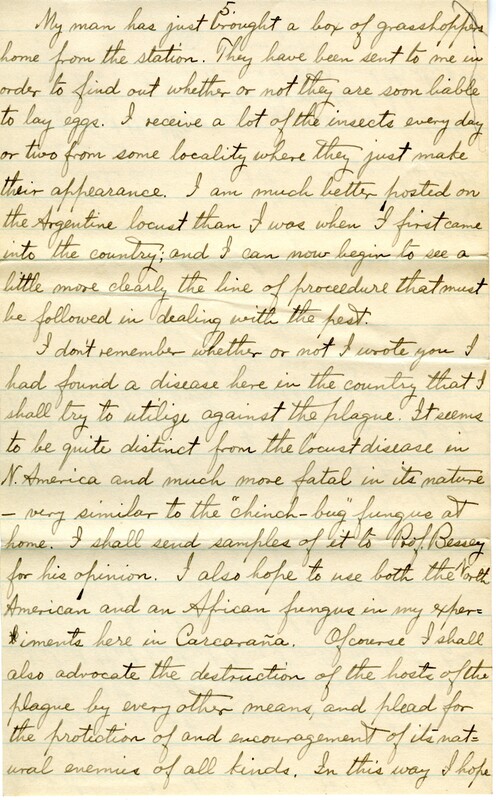 5.
My man has just brought a box of grasshoppers
home from the station. They have been sent to me in
order to find out whether or not they are soon liable
to lay eggs. I receive a lot of the insects every day
or two from some locality where they just make
their appearance. I am much better posted on
the Argentine locust than I was when I first came
into the country; and I can now begin to see a
little more clearly the line of proceedure that must
be followed in dealing with the pest.
I don't remember whether or not I wrote you I
had found a disease here in the country that I
shall try to utilize against the plague. It seems
to be quite distinct from the locust disease in
N. America and much more fatal in its nature
– very similar to the "chinch-bug" fungus at
home. I shall send samples of it to Prof. Bessey
for his opinion. I also hope to use both the North
American and an African fungus in my exper-
iments here in Carcaraña. Ofcourse I shall
also advocate the destruction of the hosts of the
plague by every other means, and plead for
the protiction of and encouragement of its nat=
ural enemies of all kinds. In this way I hope